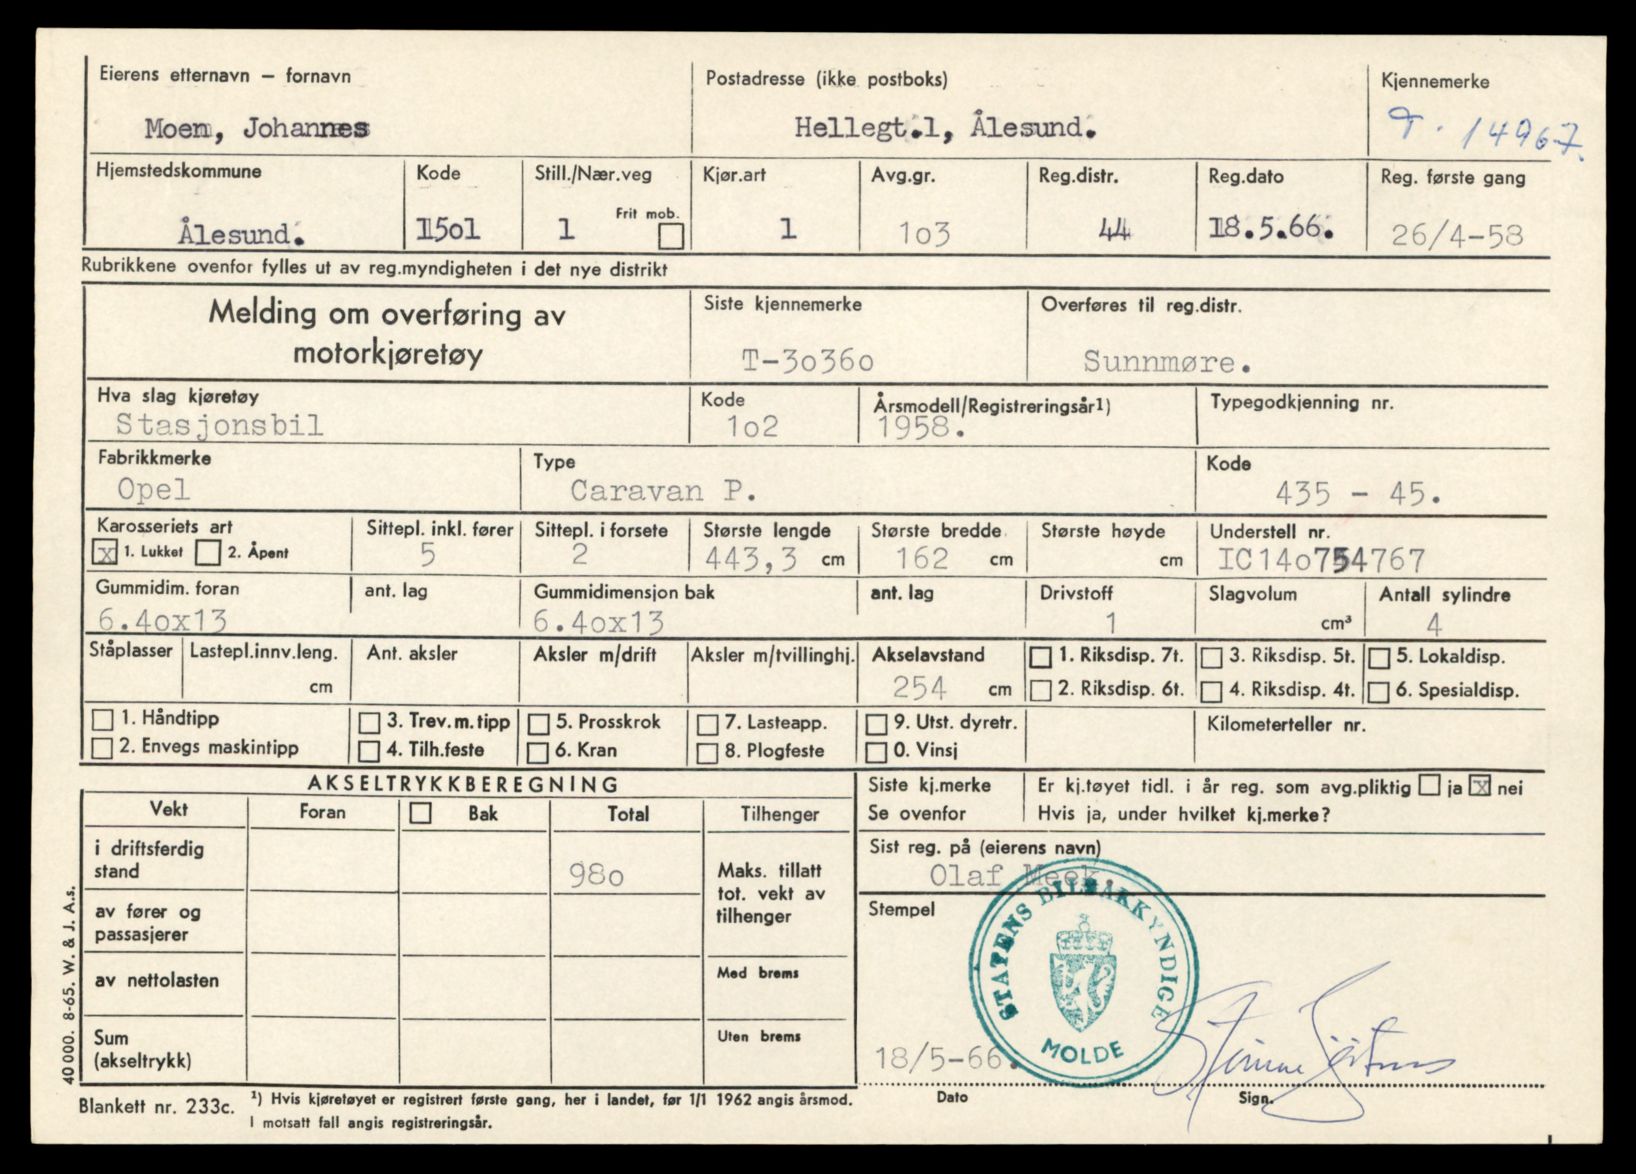 Eierens etternavn – fornavn
Postadresse (ikke postboks)
Kjennemerke
Moen, Johannes
Hellegt.1, Ålesund.
T. 14967.
Hjemstedskommune
Kode
Still./Nær.veg
Kjør.art
Avg.gr.
Reg.distr.
Reg.dato
Reg. første gang
Frit mob.
Ålesund.
15o1
1
1
1o3
44
18.5.66.
26/4-58
Rubrikkene ovenfor fylles ut av reg.myndigheten i det nye distrikt
Melding om overføring av
motorkjøretøy
Siste kjennemerke
T-3o36o
Overføres til reg.distr.
Sunnmøre.
Hva slag kjøretøy
Stasjonsbil
Kode
1o2
Årsmodell/Registreringsår1)
1958.
Typegodkjenning nr.
Fabrikkmerke
Opel
Type
Caravan P.
Kode
435 - 45.
Karosseriets art
X 1. Lukket 2. Åpent
Sittepl. inkl. fører
5
Sittepl. i forsete
2
Største lengde
443,3 cm
Største bredde
162 cm
Største høyde
cm
Understell nr.
IC14o754767
Gummidim. foran
6.4ox13
ant. lag
Gummidimensjon bak
6.4ox13
ant. lag
Drivstoff
1
Slagvolum
cm³
Antall sylindre
4
Ståplasser
Lastepl.innv.leng.
cm
Ant. aksler
Aksler m/drift
Aksler m/tvillinghj.
Akselavstand
254 cm
1. Riksdisp. 7t.
3. Riksdisp. 5t.
5. Lokaldisp.
2. Riksdisp. 6t.
4. Riksdisp. 4t.
6. Spesialdisp.
1. Håndtipp
3. Trev. m. tipp
5. Prosskrok
7. Lasteapp.
9. Utst. dyretr.
Kilometerteller nr.
2. Envegs maskintipp
4. Tilh.feste
6. Kran
8. Plogfeste
0. Vinsj
AKSELTRYKKBEREGNING
Vekt
Foran
Bak
Total
Tilhenger
i driftsferdig
stand
98o
Maks. tillatt
tot. vekt av
tilhenger
av fører og
passasjerer
av nettolasten
Med brems
Sum
(akseltrykk)
Uten brems
Siste kj.merke
Se ovenfor
Er kj.tøyet tidl. i år reg. som avg.pliktig ja X nei
Hvis ja, under hvilket kj.merke?
Sist reg. på (eierens navn)
Olaf Meek.
Stempel
STATENS BILSAKKYNDIGE
MOLDE
18/5-66.
Dato
Sign.
40000. 8-65. W. & J. A.s.
Blankett nr. 233c.
1) Hvis kjøretøyet er registrert første gang, her i landet, før 1/1 1962 angis årsmod.
I motsatt fall angis registreringsår.